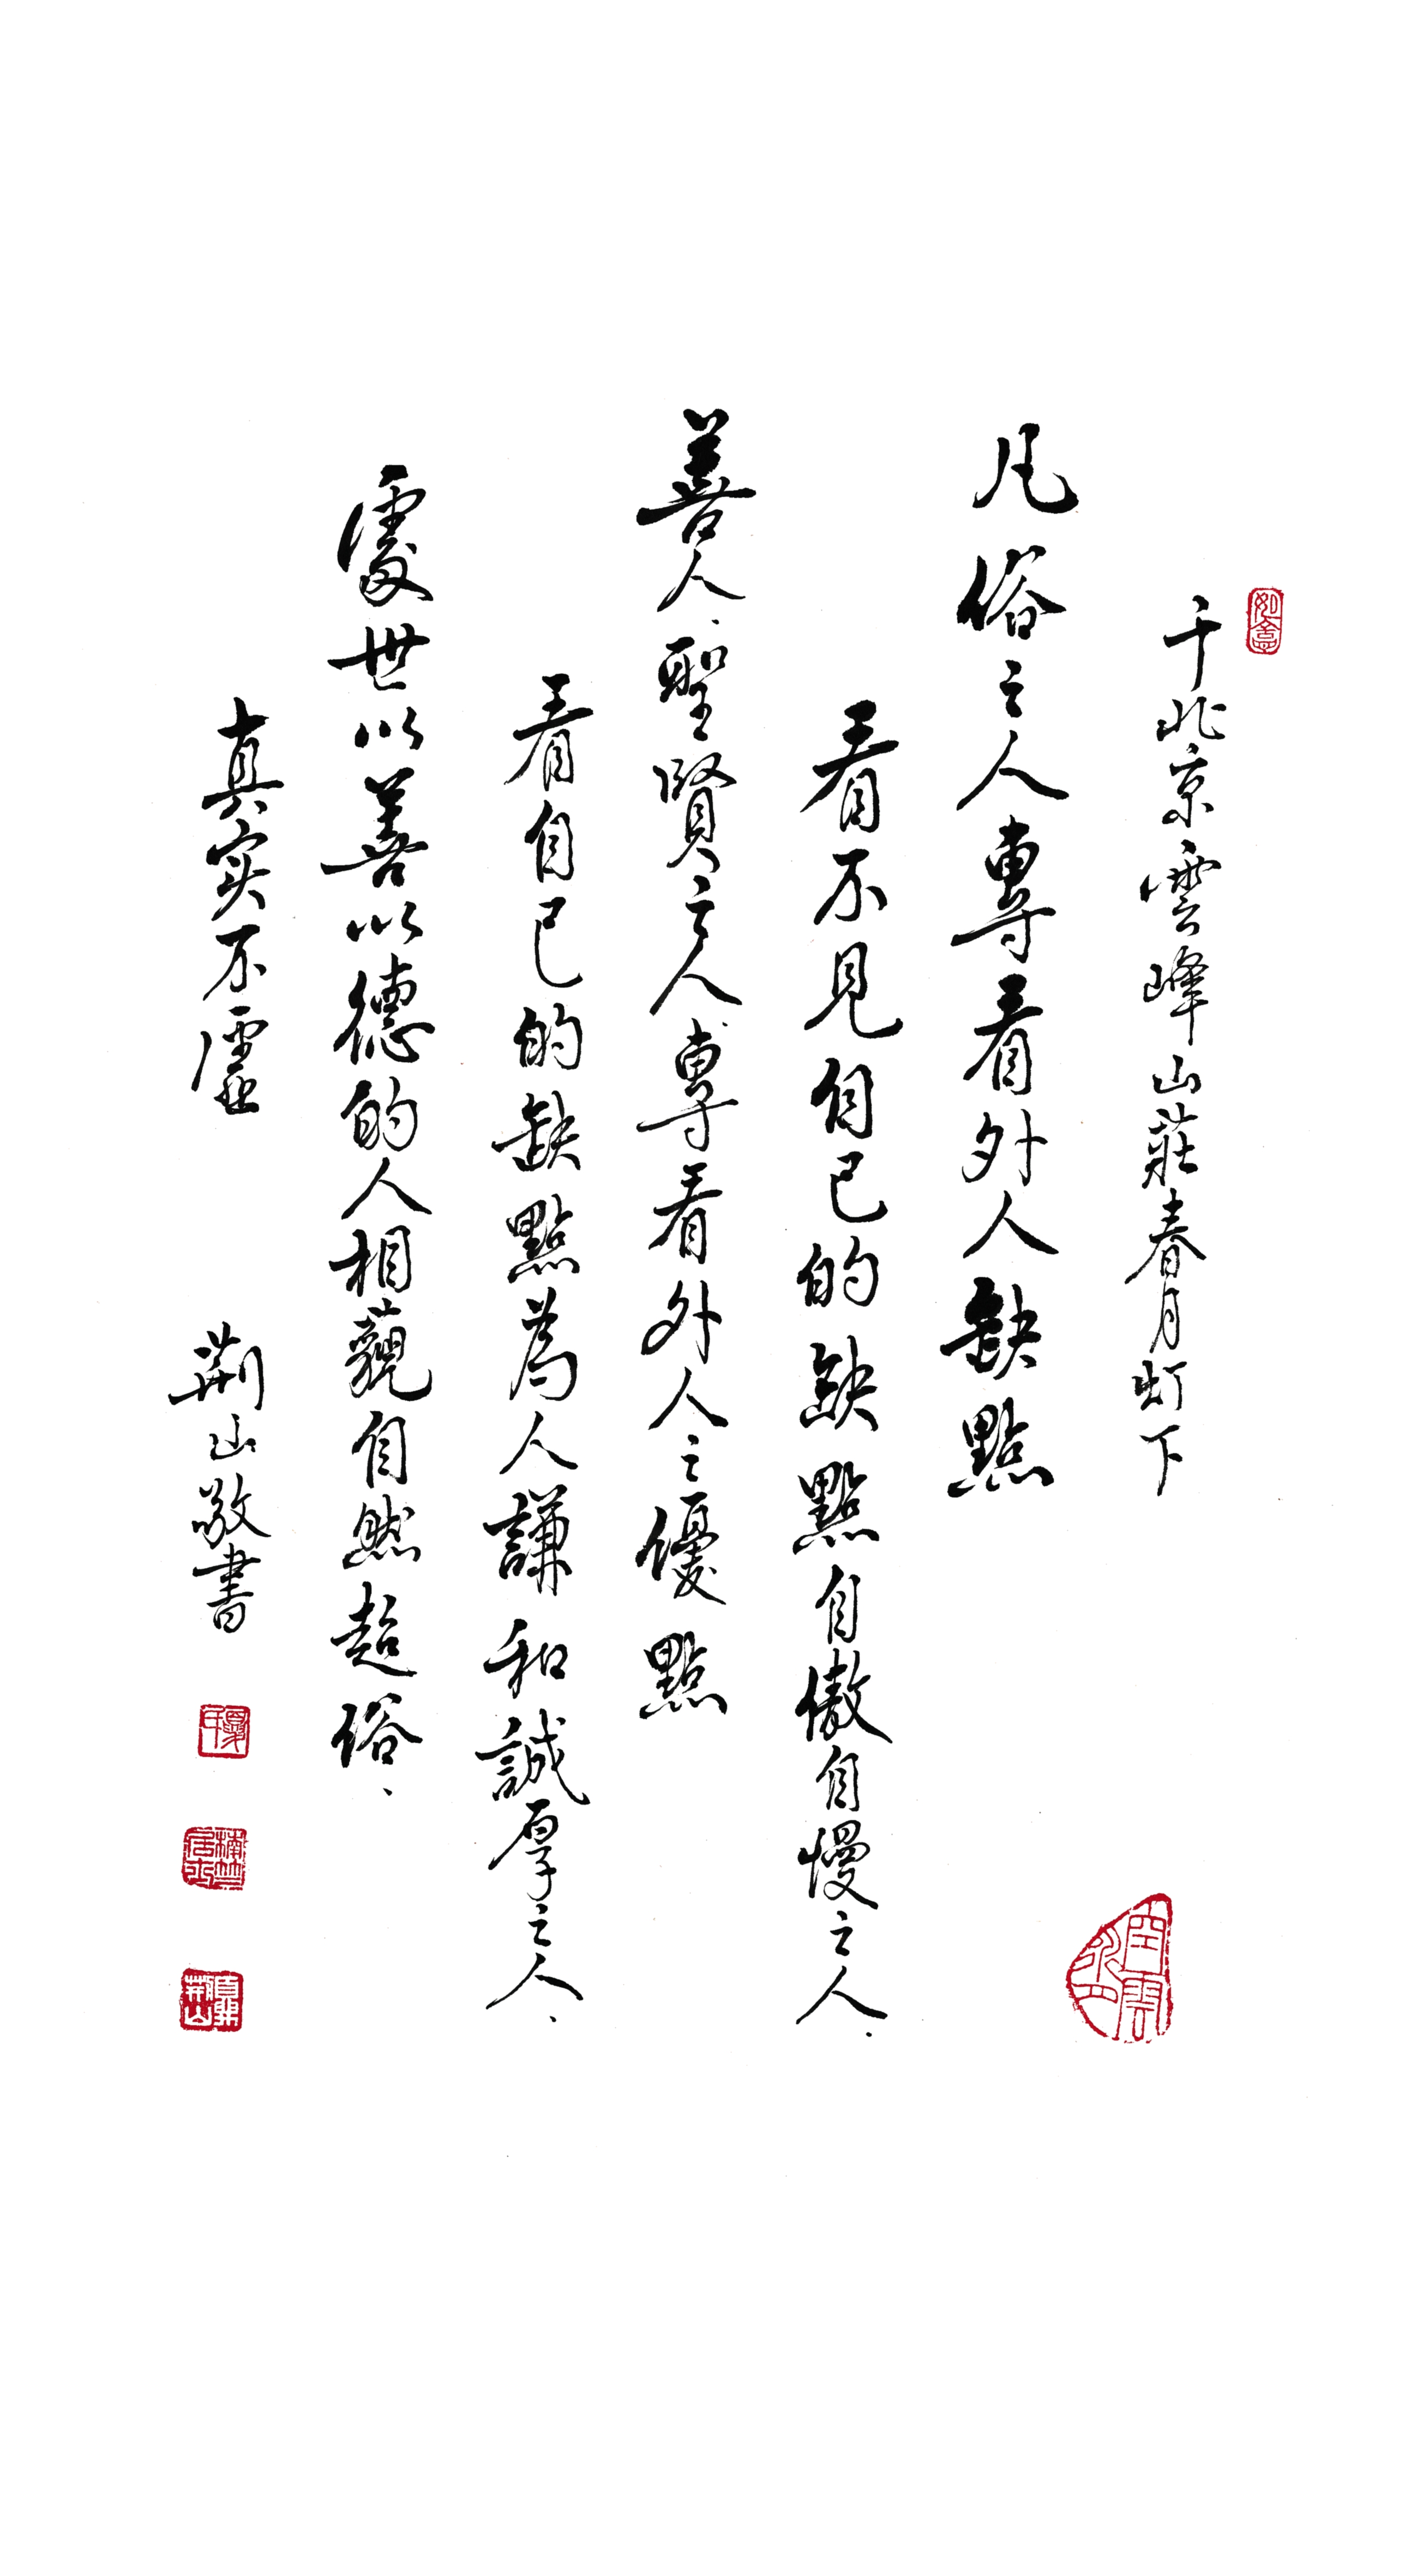 于北京雲峰山莊春月灯下
凡俗之人專看外人缺點
看不見自己的缺點自傲自慢之人、
善人、聖賢之人、專看外人之優點
看自己的缺點為人謙和誠厚之人、
處世以善以德的人相藐自然超俗、
真实不虛
荆山敬書
如意